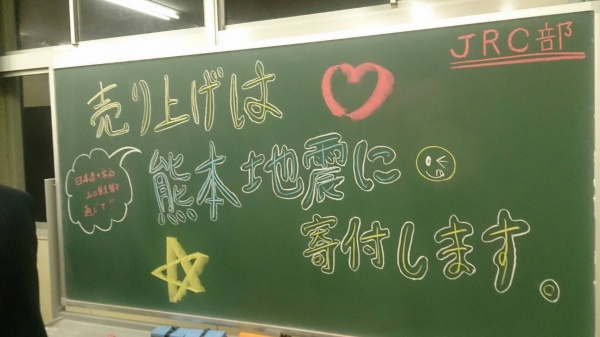 JRC部
売り上げは
熊本地震に
日本赤十字社
山口県支部を
通じて
寄付します。